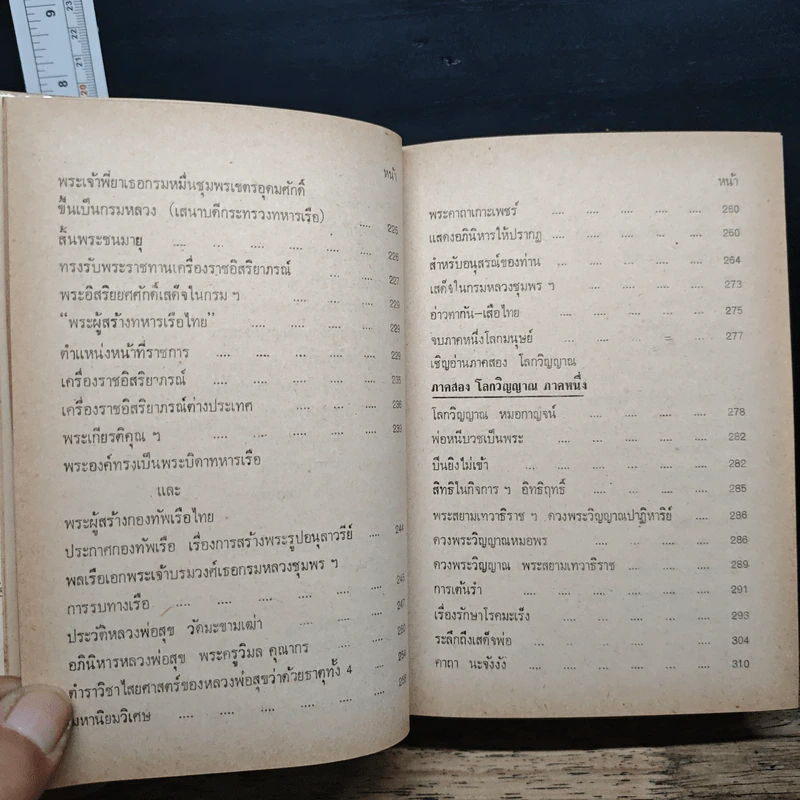 9
23
22
21
8
20
หน้า
พระเจ้าพี่ยาเธอกรมหมื่นชุมพรเขตรอุดมศักดิ์
ขึ้นเป็นกรมหลวง (เสนาบดีกระทรวงทหารเรือ) .... 225
สิ้นพระชนมายุ .... .... .... .... .... 226
ทรงรับพระราชทานเครื่องราชอิสริยาภรณ์ .... .... 227
พระอิสริยยศศักดิ์เสด็จในกรม ฯ .... .... .... 229
"พระผู้สร้างทหารเรือไทย" .... .... .... .... 229
ตำแหน่งหน้าที่ราชการ .... .... .... .... .... 229
เครื่องราชอิสริยาภรณ์ .... .... .... .... .... 235
เครื่องราชอิสริยาภรณ์ต่างประเทศ .... .... .... 236
พระเกียรติคุณ ฯ .... .... .... .... .... 239
พระองค์ทรงเป็นพระบิดาทหารเรือ
และ
พระผู้สร้างกองทัพเรือไทย
ประกาศกองทัพเรือ เรื่องการสร้างพระรูปอนุสาวรีย์ .... 244
พลเรือเอกพระเจ้าบรมวงศ์เธอกรมหลวงชุมพร ฯ
การรบทางเรือ .... .... .... .... .... 245
ประวัติหลวงพ่อสุข วัดมะขามเฒ่า .... .... .... 247
อภินิหารหลวงพ่อสุข พระครูวิมล คุณากร .... .... 250
ตำราวิชาไสยศาสตร์ของหลวงพ่อสุขว่าด้วยธาตุทั้ง 4 .... 254
มหานิยมวิเศษ .... .... .... .... .... 258
หน้า
พระคาถาเกาะเพชร์ .... .... .... .... .... 260
แสดงอภินิหารให้ปรากฏ .... .... .... .... 260
สำหรับอนุสรณ์ของท่าน .... .... .... .... 264
เสด็จในกรมหลวงชุมพร ฯ .... .... .... .... 273
อ่าวตากัน-เสือไทย .... .... .... .... .... 275
จบภาคหนึ่งโลกมนุษย์ .... .... .... .... 277
เชิญอ่านภาคสอง โลกวิญญาณ
ภาคสอง โลกวิญญาณ ภาคหนึ่ง
โลกวิญญาณ หมอกาญจน์ .... .... .... .... 278
พ่อหนีบวชเป็นพระ .... .... .... .... .... 282
ปืนยิงไม่เข้า .... .... .... .... .... .... 282
สิทธิในกิจการ ฯ อิทธิฤทธิ์ .... .... .... .... 285
พระสยามเทวาธิราช ฯ ดวงพระวิญญาณปาฏิหาริย์ .... 286
ดวงพระวิญญาณหมอพร .... .... .... .... 286
ดวงพระวิญญาณ พระสยามเทวาธิราช .... .... .... 289
การเต้นรำ .... .... .... .... .... .... 291
เรื่องรักษาโรคมะเร็ง .... .... .... .... .... 293
ระลึกถึงเสด็จพ่อ .... .... .... .... .... 304
คาถา นะจังงัง .... .... .... .... .... 310